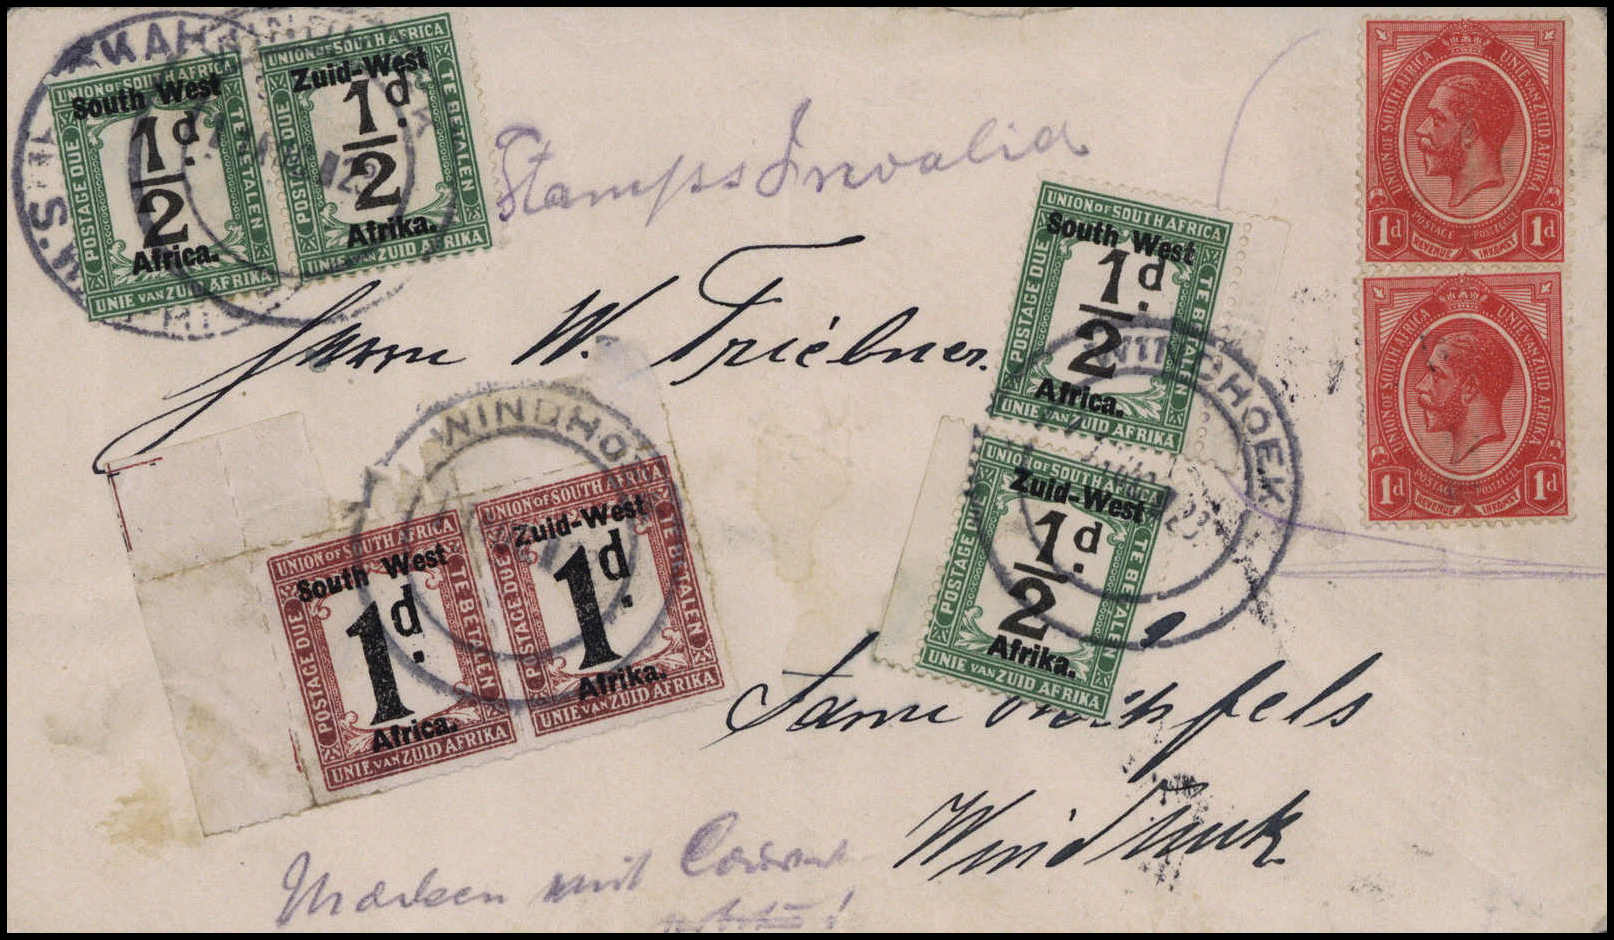 UNION OF SOUTH AFRICA
South West
POSTAGE DUE
1/2 d.
TE BETALEN
Africa.
UNIE VAN ZUID AFRIKA
UNION OF SOUTH AFRICA
Zuid-West
POSTAGE DUE
1/2 d.
TE BETALEN
Afrika.
UNIE VAN ZUID AFRIKA
Stamps Invalid
UNION OF SOUTH AFRICA
UNIE VAN ZUID AFRIKA
POSTAGE POSTZEGEL
1d REVENUE INKOMST 1d
UNION OF SOUTH AFRICA
UNIE VAN ZUID AFRIKA
POSTAGE POSTZEGEL
1d REVENUE INKOMST 1d
UNION OF SOUTH AFRICA
South West
POSTAGE DUE
1/2 d.
TE BETALEN
Africa.
UNIE VAN ZUID AFRIKA
UNION OF SOUTH AFRICA
Zuid-West
POSTAGE DUE
1/2 d.
TE BETALEN
Afrika.
UNIE VAN ZUID AFRIKA
WINDHOEK
Herrn W. Triebner.
WINDHO
UNION OF SOUTH AFRICA
South West
POSTAGE DUE
1d.
TE BETALEN
Africa.
UNIE VAN ZUID AFRIKA
UNION OF SOUTH AFRICA
Zuid-West
POSTAGE DUE
1d.
TE BETALEN
Afrika.
UNIE VAN ZUID AFRIKA
Windhuk
Marken mit